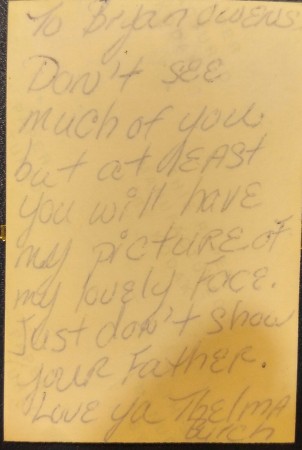 To Bryan Owens
Don't see
much of you.
but at least
you will have
my picture of
my lovely Face.
Just don't show
your Father.
Love ya Thelma
Burch